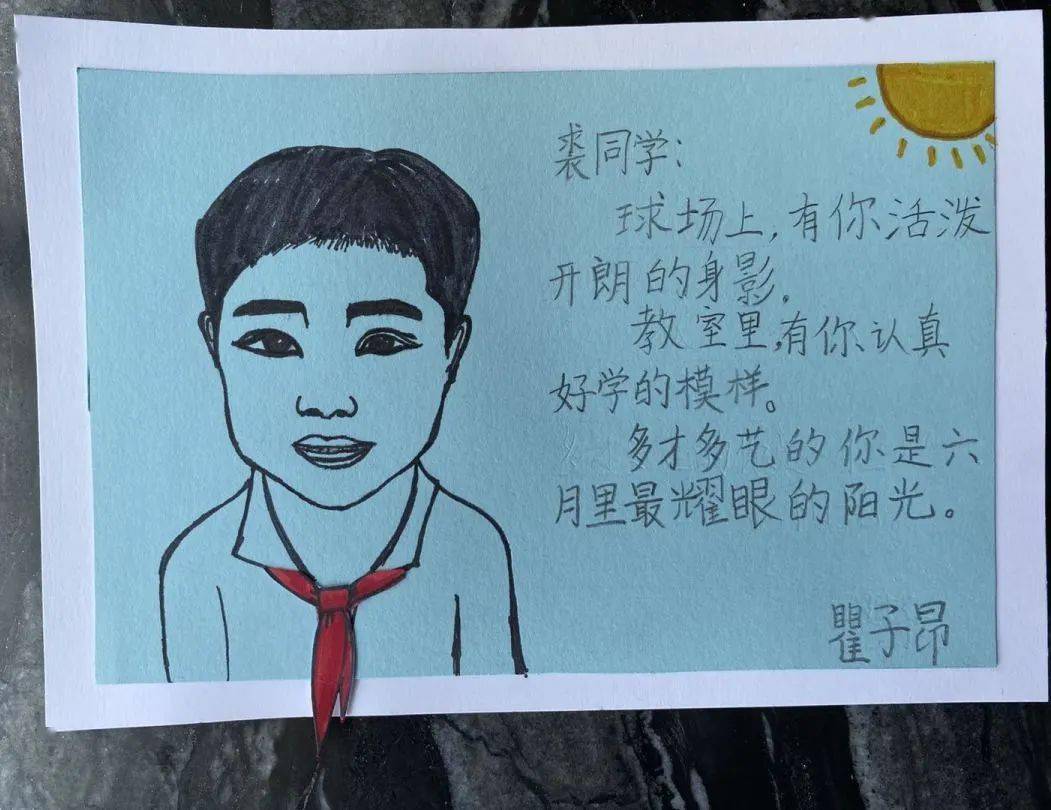 裘同学：
球场上，有你活泼
开朗的身影。
教室里，有你认真
好学的模样。
多才多艺的你是六
月里最耀眼的阳光。
瞿子昂